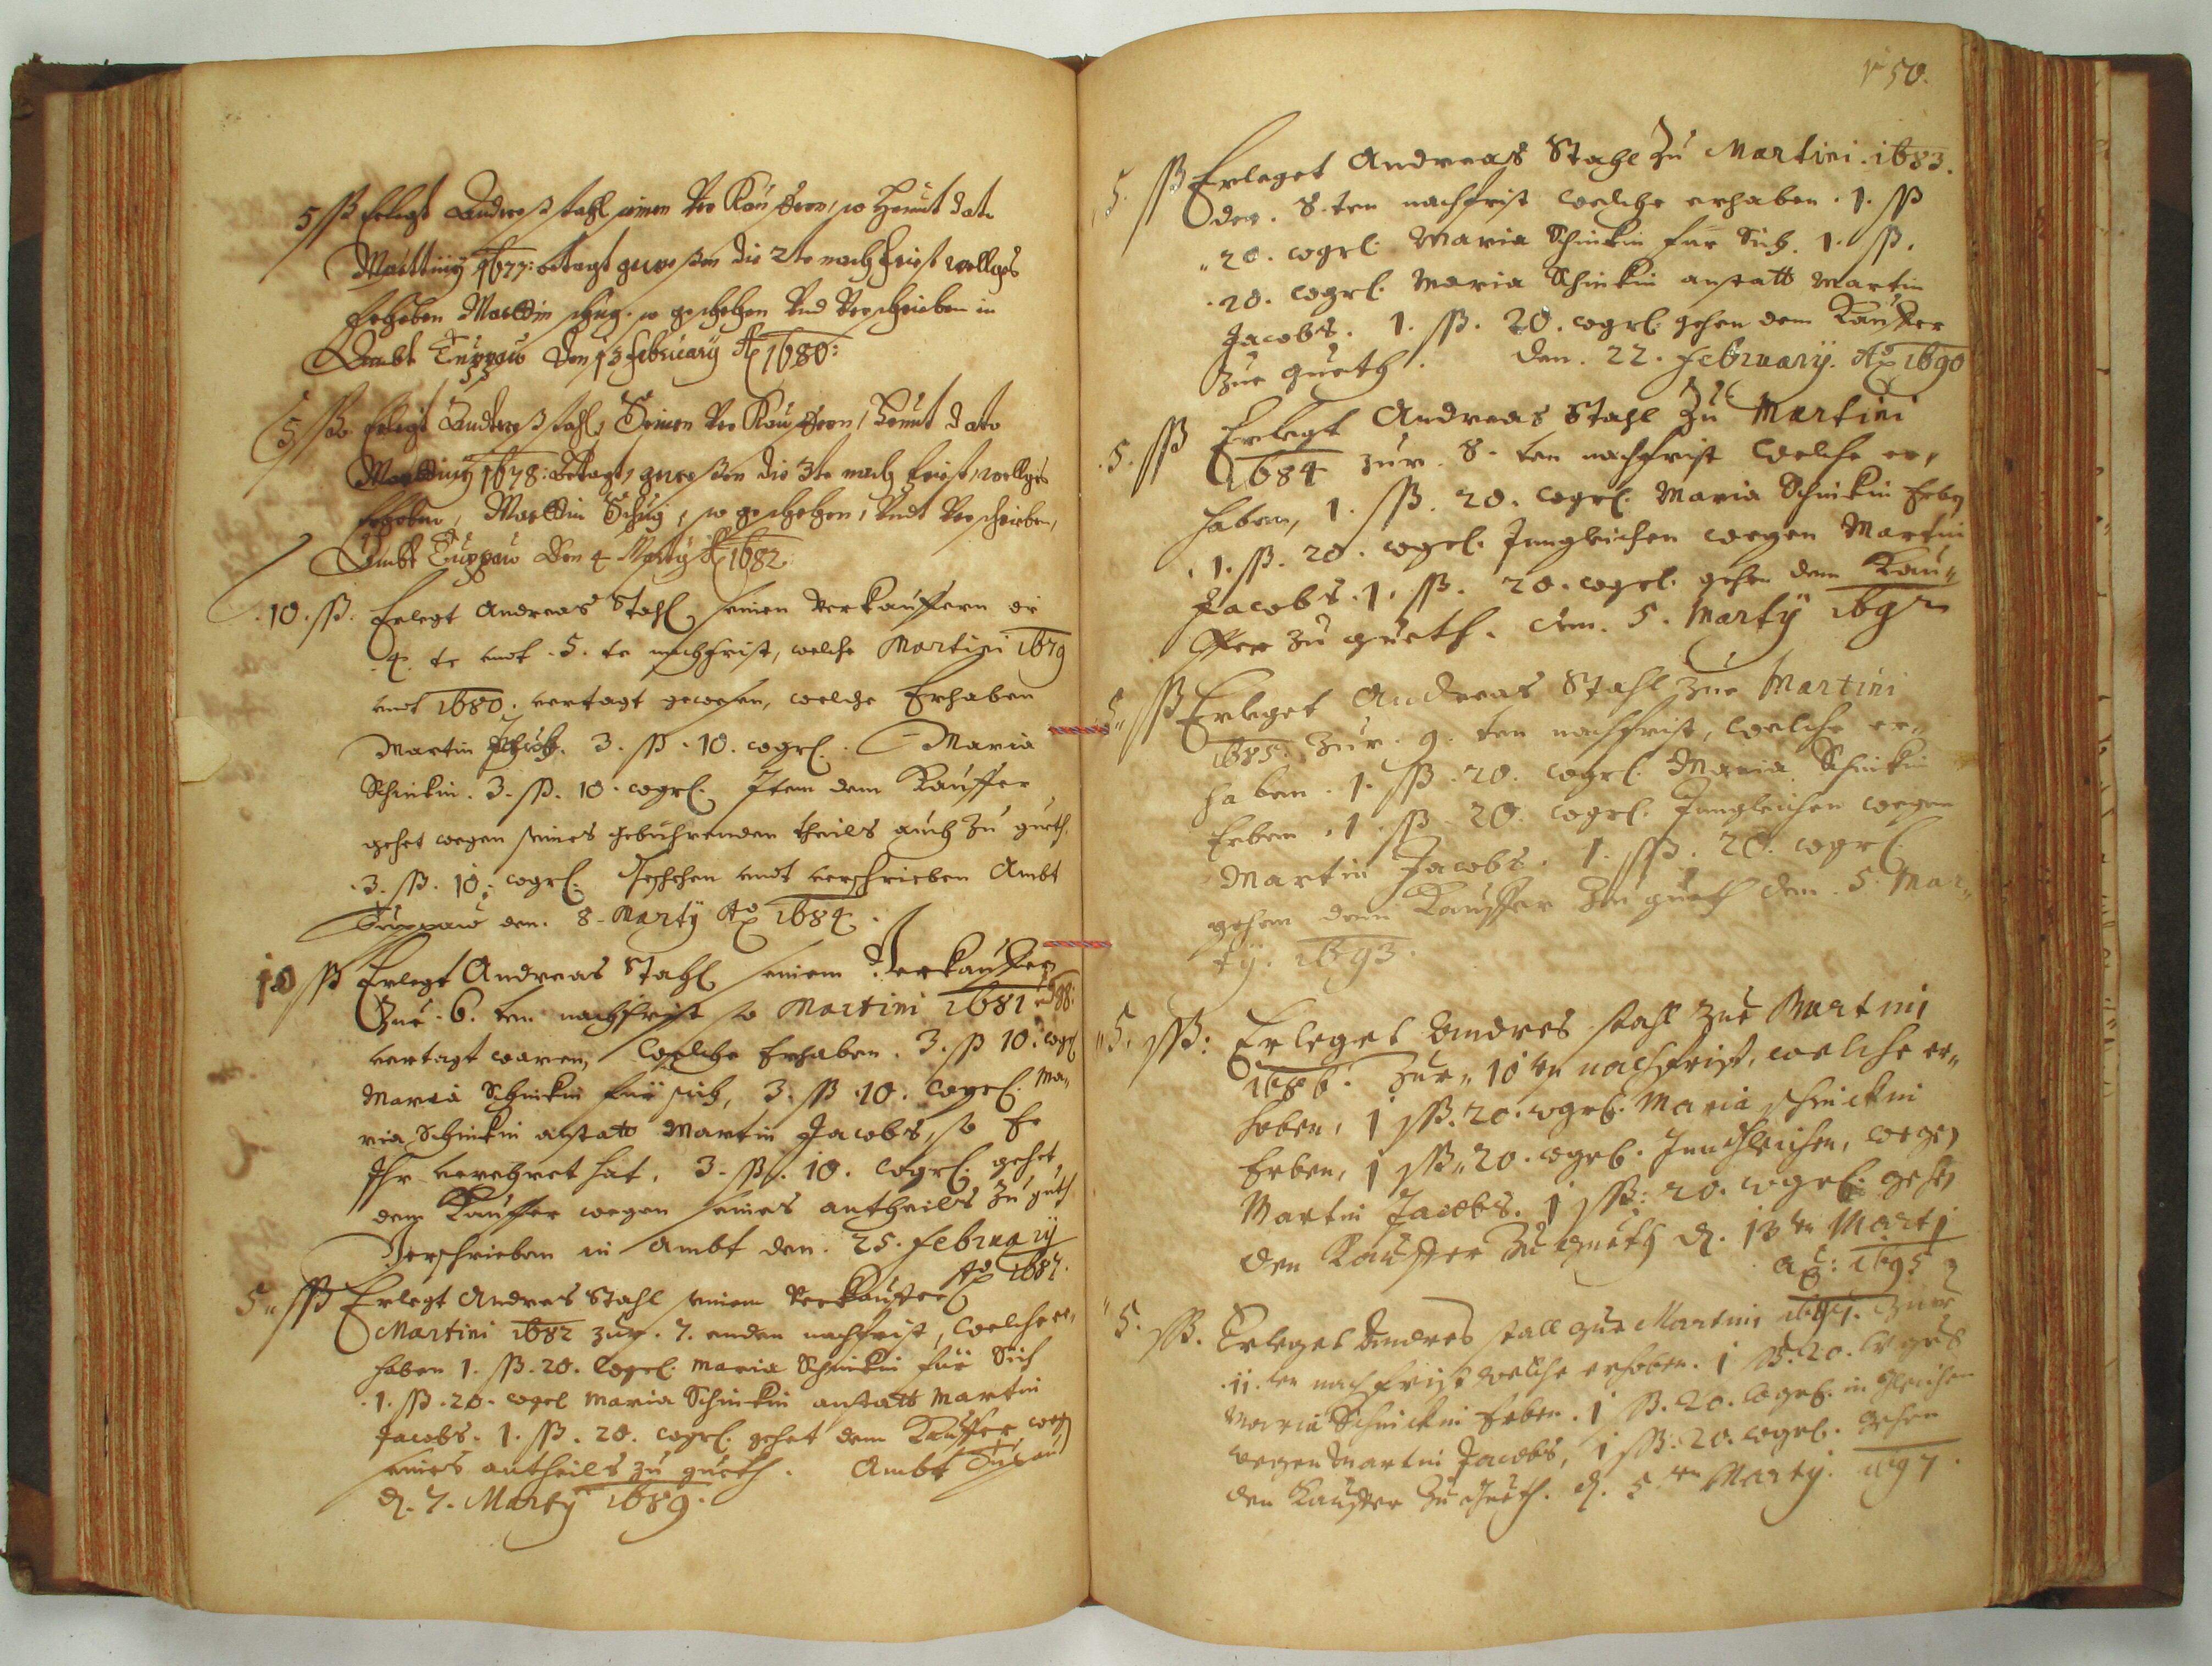 5 ßß Erlegt Andreß Stahl seinen Verkauffern, so heünt dato
Marttiny 1677: betagt geweßen die 2te nachfrist welliges
Erhoben Marttin Schug. so geschehen Vnd Verschrieben in
Ambt Tuppau Den 13 february Ao 1680:
5 ßß Erlegt Andreß Stahl, Seinen Verkauffern, heünt dato
Marttiny 1678: betagt, geweßen die 3te nach frist, welliges
Erhoben, Marttin Schug, so geschehen, Vndt Verschrieben,
Ambt Tuppau Den 4 Marty Ao 1682
.10. ßß. Erlegt Andreas Stahl seinen Verkauffern die
.4. te vndt .5. te nachfrist, welche Martini 1679
vndt 1680. vertagt gewesen, welche Erhaben
Martin Schug. 3. ßß. 10. wgrl. Maria
Schinkin. 3. ßß. 10. wgrl. Item dem Kauffer
gehet wegen seines gebührenden theils auch Zu gueth.
.3. ßß. 10. wgrl. Geschehen vndt verschrieben Ambt
Tuppau den. 8. Marty Ao 1684.
10 ßß Erlegt Andreas Stahl seinem Verkauffer
Zur .6. ten nachfrist so Martini 1681
vertagt waren, Welche Erhaben. 3. ßß 10. wgrl
Maria Schinkin für sich, 3. ßß .10. wgrl. Ma-
ria Schinkin anstatt Martin Jacobs, so Er
Ihr verehret hat, 3. ßß. 10. wgrl. gehet
dem Kauffer wegen seines antheils Zu guth
Verschrieben in Ambt den. 25. february
Ao 1687.
5 „ ßß Erlegt Andreas Stahl seinem Verkauffer
Martini 1682 zur .7. enden nachfrist, welche er„
haben 1. ßß. 20. wgrl. Maria Schinkin für Sich
.1. ßß .20. wgrl Maria Schinkin anstatt Martin
Jacobs. 1. ßß. 20. wgrl. gehet dem Kauffer weg
seines antheils zu gueth. Ambt Tupau
d. 7. Marty 1689.
50.
5. ßß Erleget Andreas Stahl Zu Martini. 1683.
der. 8. ten nachfrist welche erhaben .1. ßß
„20. wgrl. Maria Schinkin für Sich. 1. ßß.
.20. wgrl. Maria Schinkin anstatt Martin
Jacobs. 1. ßß. 20. wgrl. gehen dem Kauffer
Zue gueth. den. 22. february. Ao 1690
.5. ßß Erlegt Andreas Stahl Zu Martini
1684 zur .8. ten nachfrist welche er„
haben, 1. ßß. 20. wgrl. Maria Schinkin Erben
.1. ßß. 20. wgrl. Inngleichen wegen Martin
Jacobs .1. ßß. 20. wgrl. gehen dem Kau„
ffer zu gueth. den. 5. Marty 1692
5„ ßß Erleget Andreas Stahl Zue Martini
1685. Zur .9. ten nachfrist, welche er„
haben .1. ßß .20. wgrl. Maria Schinkin
Erben .1. ßß 20. wgrl. Inngleichen wegen
Martin Jacobs. 1. ßß. 20. wgrl.
gehen dem Kauffer Zu gueth den. 5. Mar„
ty. 1693.
„5. ßß: Erleget Andres Stahl Zue Martini
1686. Zur„ 10 ten nachfrist, welche er„
hoben, 1 ßß. 20. wgrl. Maria Schinckin
Erben, 1 ßß„ 20. wgrl. Inngleichen, wegen
Martin Jacobs. 1 ßß: 20. wgrl. gehen
den Kauffer Zu gueth d. 13ten Marti
ao: 1695
„5. ßß. Erleget Andres Stall Zue Martini Zur
.11. ten nachfrist welche erhoben. 1 ßß. 20. wgrl
Maria Schinckin Erben. 1 ßß. 20. wgrl. in gleichen
wegen Martin Jacobs, 1 ßß: 20. wgrl. gehen
den Kauffer Zu gueth. d. 5ten Marty. 1697.